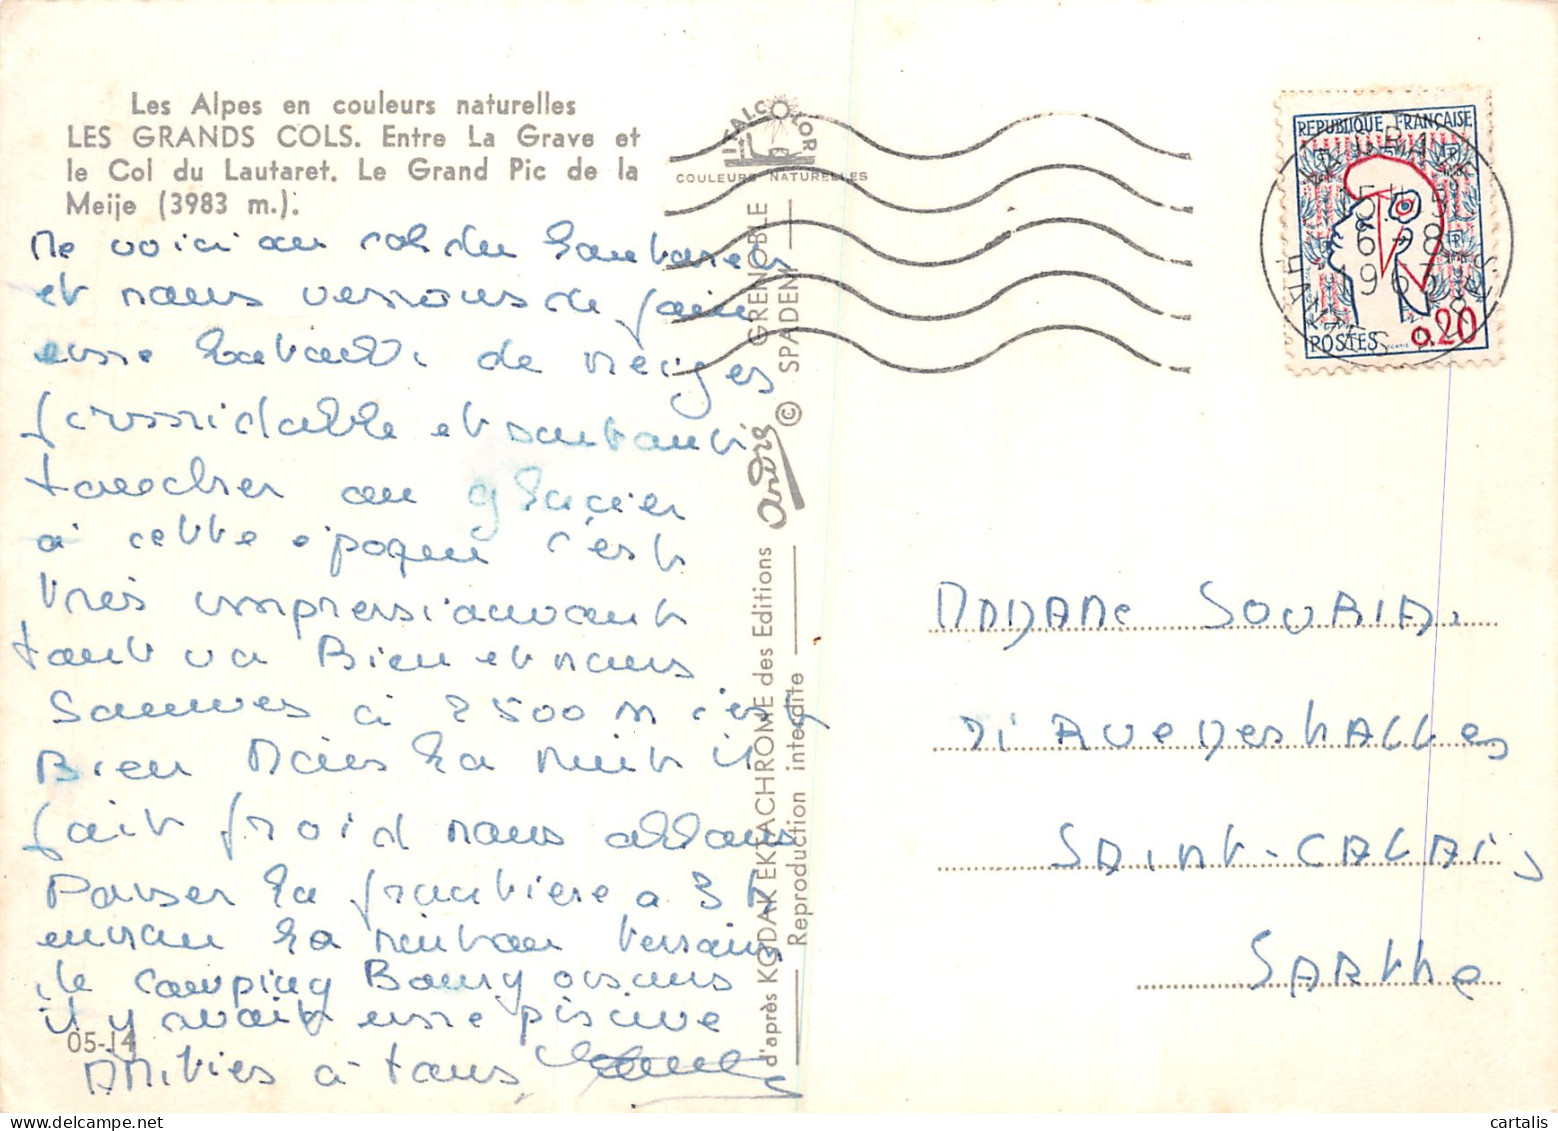 Les Alpes en couleurs naturelles
LES GRANDS COLS. Entre La Grave et
le Col du Lautaret. Le Grand Pic de la
Meije (3983 m.).
Me voici au col du Lautaret
et nous venons de faire
une bataille de neiges
formidable et surtout
toucher au glacier
a cette epoque c'est
très impressionnant
tout va Bien et nous
sommes à 2500 M c'est
Bien Mais la nuit il
fait froid nous allons
Passer la frontière a 3 h
environ la nuit au terrain
de camping Bourg oisans
il y avait une piscine
AMities à tous
05-14
ITALCOLOR
COULEURS NATURELLES
GRENOBLE
SPADEM
©
André
d'après KODAK EKTACHROME des Editions
Reproduction interdite
REPUBLIQUE FRANCAISE
POSTES
0.20
15H15
6-8
1963
HAUTES
MADAME SOURIAU
Rue Des HALLes
SAINT-CALAIS
SARTHe
cartalis